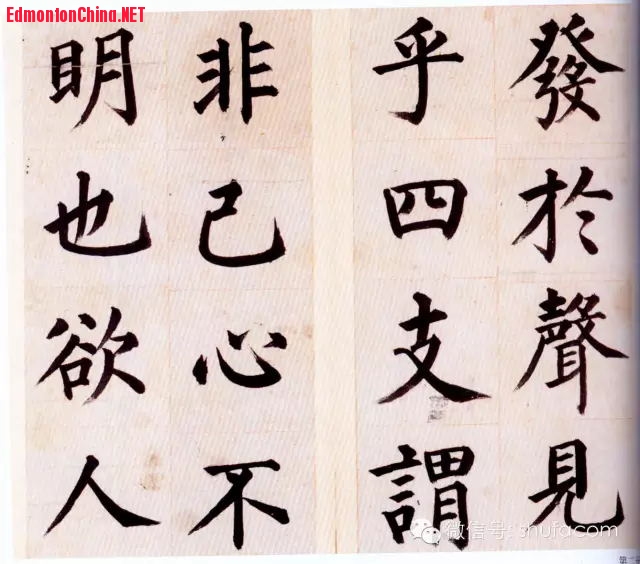 EdmontonChina.NET
發於聲見
乎四支謂
非己心不
明也欲人
微信号: shufacom